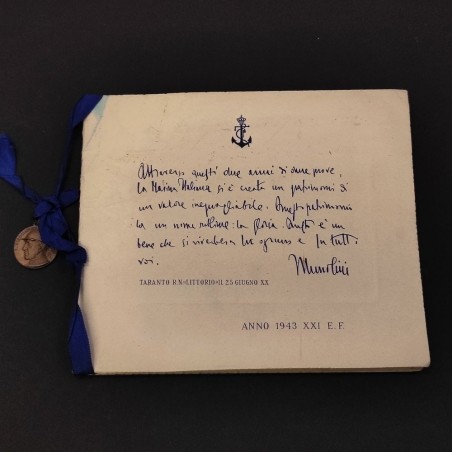 Attraverso questi due anni di dure prove,
la Marina Italiana si è creata un patrimonio di
un valore ineguagliabile. Questo patrimonio
ha un nome sublime: la gloria. Questo è un
bene che si riverbera su ognuno e su tutti
voi.
Mussolini
TARANTO R.N. «LITTORIO» IL 25 GIUGNO XX
ANNO 1943 XXI E. F.